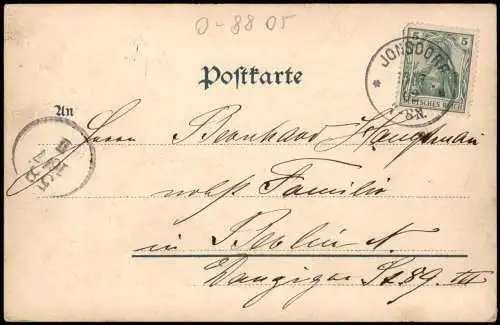 O-8805
Postkarte
5 5
JONSDORF
DEUTSCHES REICH
An
Herrn Bernhard Hauptman
nebst Familie
in Berlin N.
Danziger St 89. III